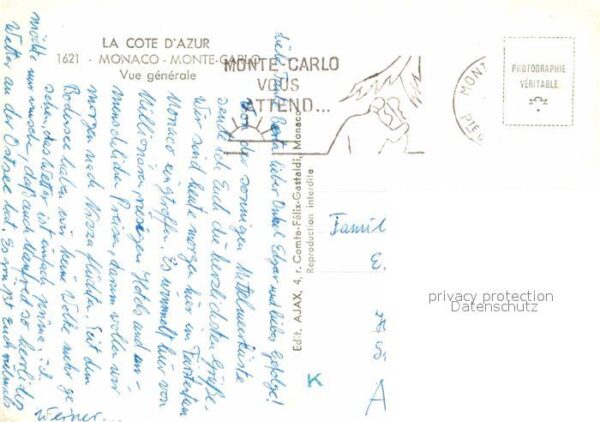 LA COTE D'AZUR
1621 - MONACO - MONTE-CARLO
Vue générale
MONTE-CARLO
VOUS
ATTEND...
MONT
PHOTOGRAPHIE
VÉRITABLE
Edit. AJAX, 4, r. Comte-Félix-Gastaldi, Monaco
Reproduction interdite
lieber Onkel Edgar und liebes Gefolge!
Von der sonnigen Mittelmeerküste
sende ich Euch die herzlichsten Grüße.
Wir sind heute morgen hier im Fürstentum
Monaco eingetroffen. Es wimmelt hier von
Millionären, riesigen Hotels und un-
menschlichen Preisen, darum wollen wir
morgen nach Nizza flüchten. Seit dem
Bodensee haben wir keine Wolke mehr ge-
sehen, das Wetter ist einfach prima. Ich
möchte nur wünschen, daß auch Manfred so herrliches
Wetter an der Ostsee hat. Es grüßt Euch vielmals
Werner...
Famil
E.
K
A
privacy protection
Datenschutz